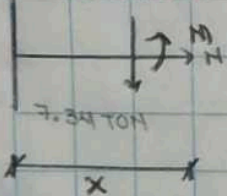 M
N
7.34 TON
X